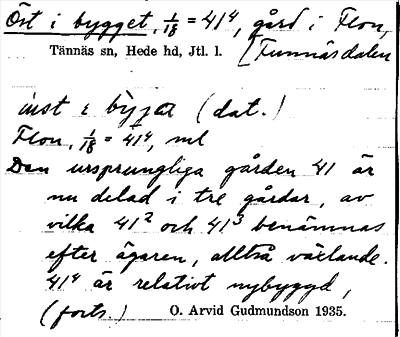 Öst i bygget, 1/18 = 41⁴, gård i Flon,
Tännäs sn, Hede hd, Jtl. l. [Funnäsdalen
i bỳjjet (dat.)
Flon, 1/18 = 41⁴, mtl
Den ursprungliga gården 41 är
nu delad i tre gårdar, av
vilka 41² och 41³ benämnas
efter ägaren, alltså växlande.
41⁴ är relativt nybyggd,
(forts.) O. Arvid Gudmundson 1935.